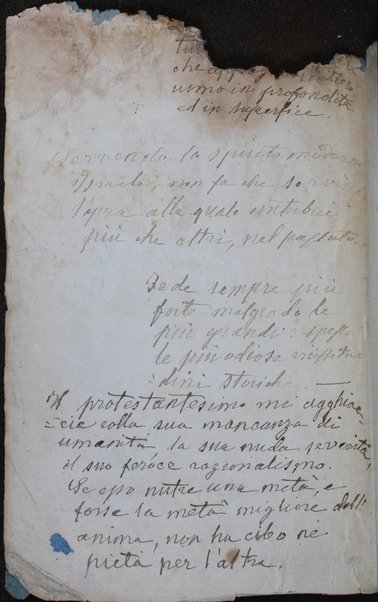 tut
che appaga l'intero
uomo in profondità
ed in superfice.
Servendo lo spirito moderno
Israele, non fa che servire
l'opra alla quale contribuì
più che altri, nel passato.
Fede sempre più
forte malgrado le
più grandi e spesso
le più odiose vicissitu
=dini storiche. —
Il protestantesimo mi agghiac=
=cia colla sua mancanza di
umanità, la sua nuda severità,
il suo feroce razionalismo.
Se esso nutre una metà, e
forse la metà migliore dell'
anima, non ha cibo nè
pietà per l'altra.